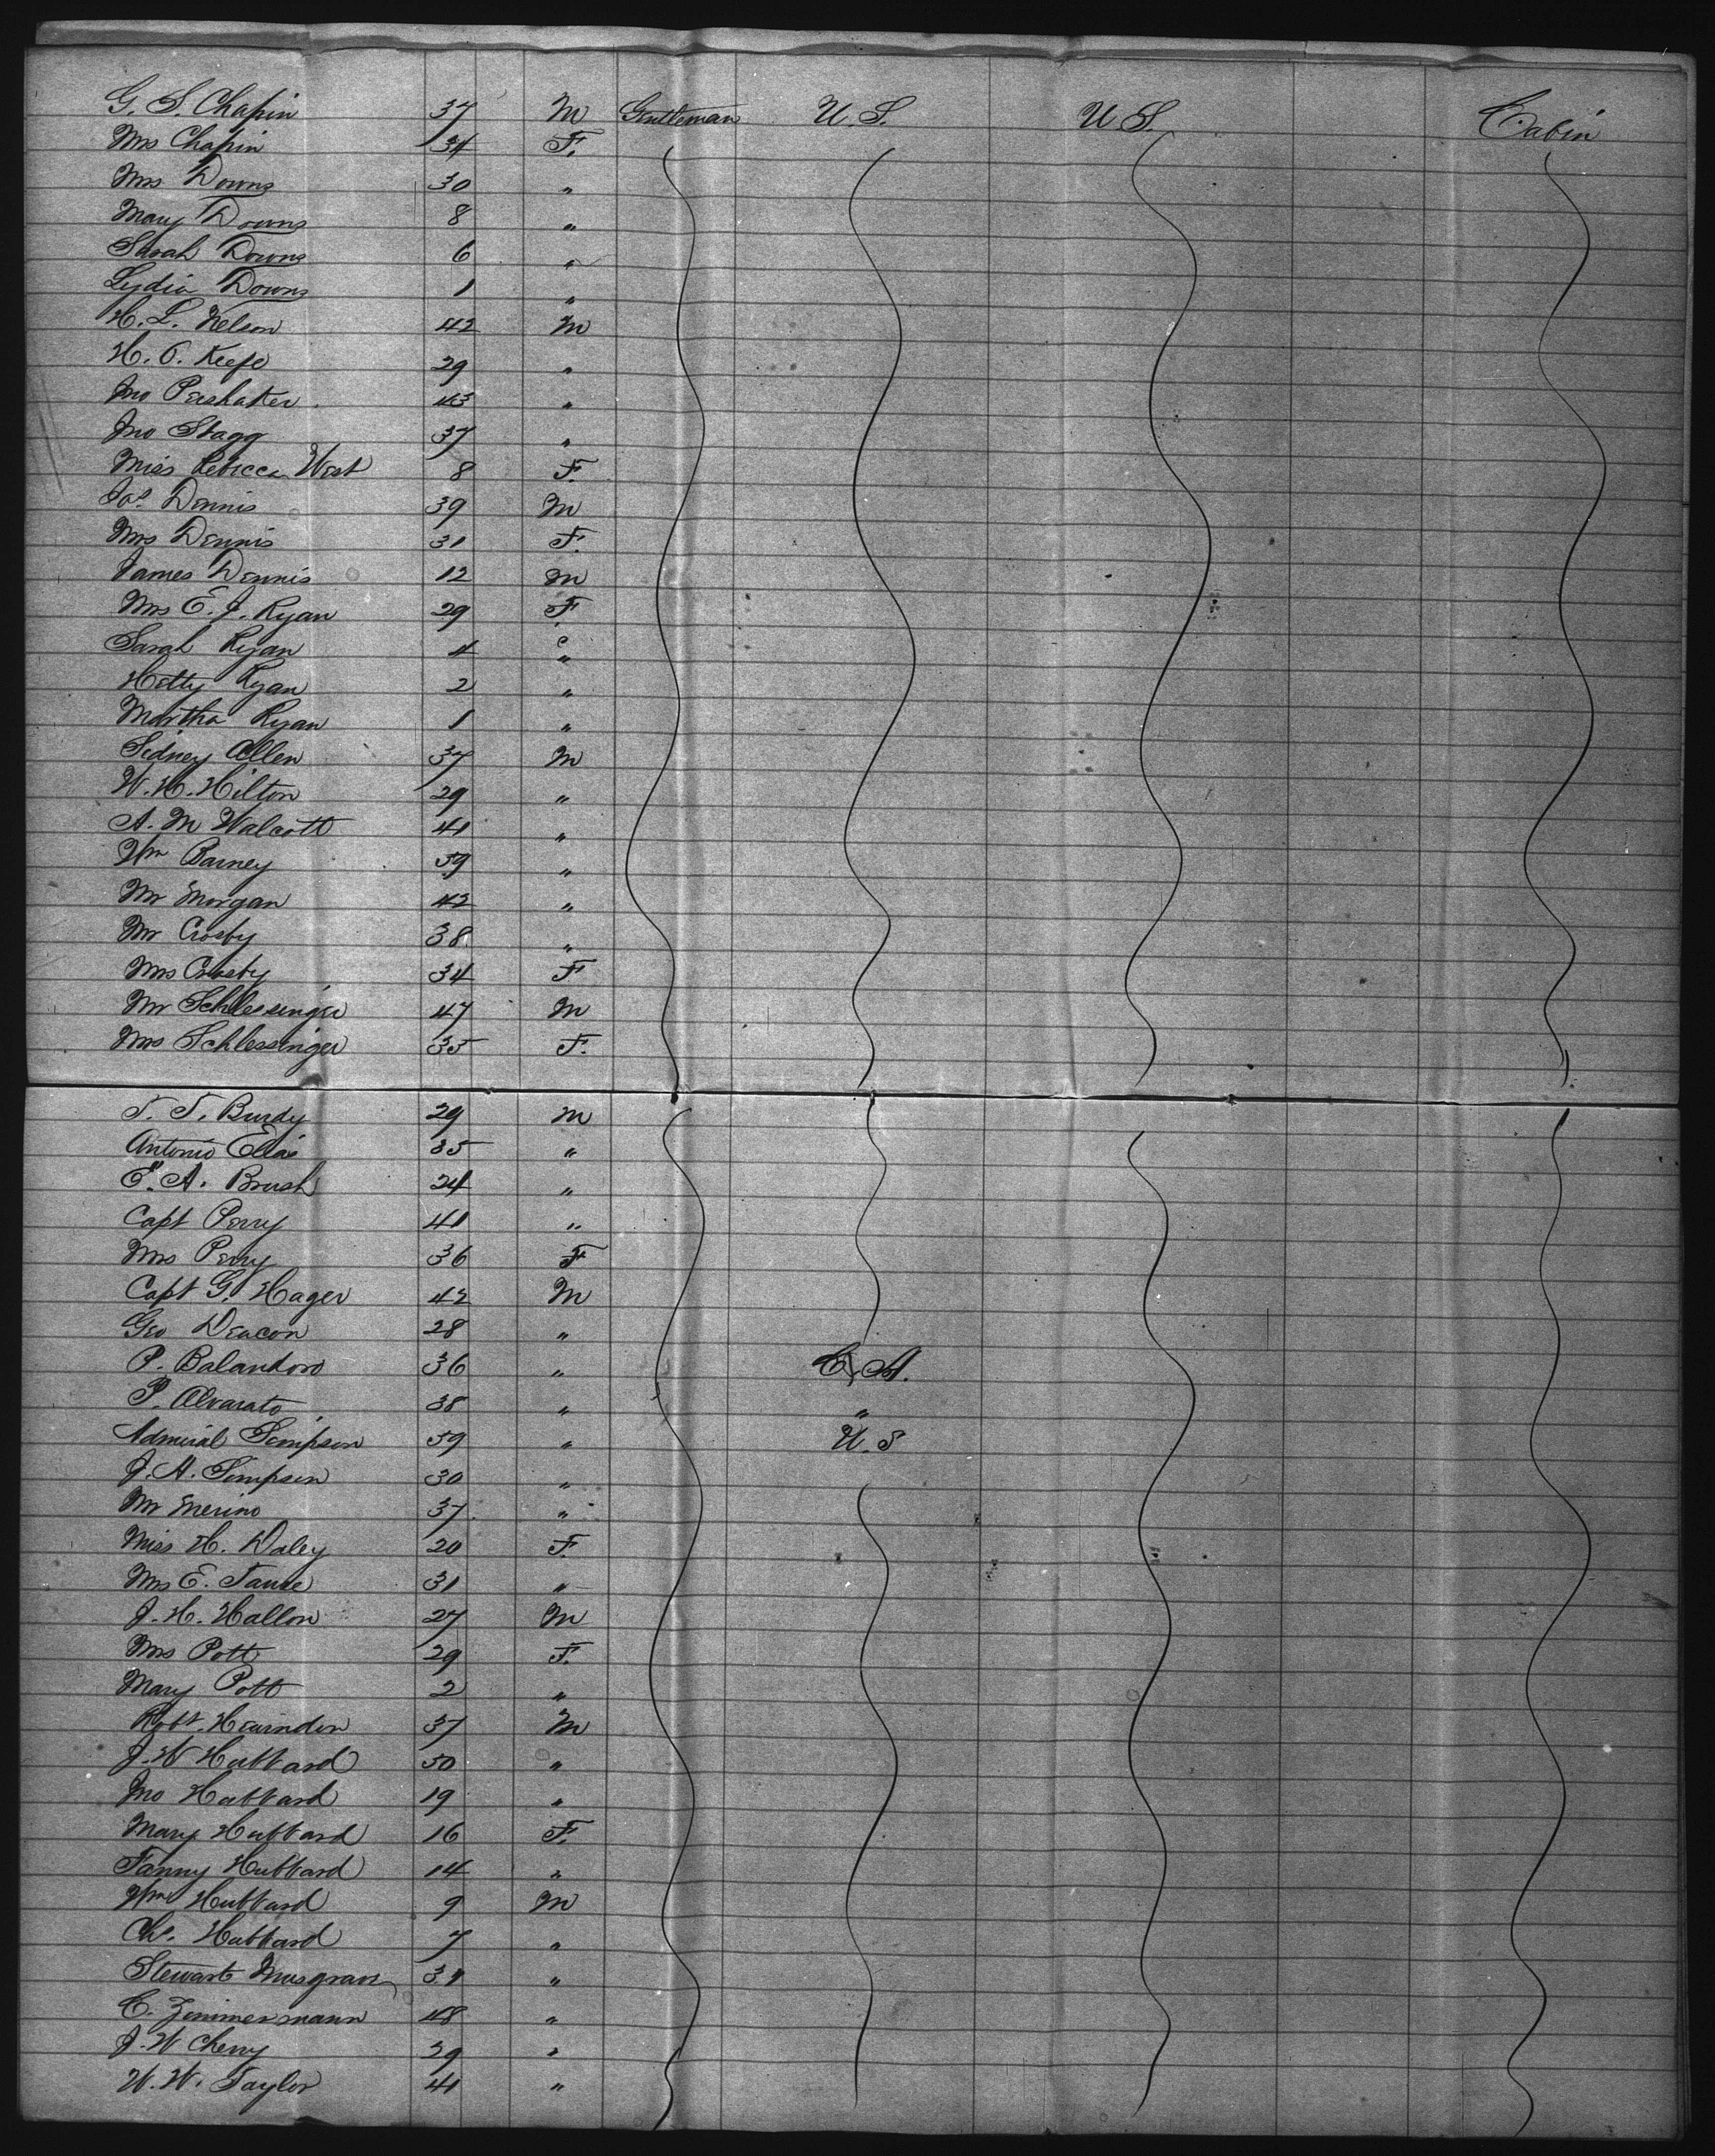 G. S. Chapin 37 M Gentleman U.S. U.S. Cabin
Mrs Chapin 34 F.
Mrs Downs 30 "
Mary Downs 8 "
Sarah Downs 6 "
Lydia Downs 1 "
H. L. Nelson 42 M
H. O. Keefe 29 "
Jno Pershaker 43 "
Jno Stagg 37 "
Miss Rebecca West 8 F.
Jos. Dennis 39 M
Mrs Dennis 31 F.
James Dennis 12 M
Mrs E. J. Ryan 29 F.
Sarah Ryan 4 "
Hetty Ryan 2 "
Martha Ryan 1 "
Sidney Allen 37 M
W. H. Hilton 29 "
A. M Walcott 41 "
Wm Barney 39 "
Mr Morgan 42 "
Mr Crosby 38 "
Mrs Crosby 34 F
Mr Schlessinger 47 M
Mrs Schlessinger 35 F.
T. T. Burdy 29 M
Antonio Elias 35 "
E. A. Brush 24 "
Capt Perry 41 "
Mrs Perry 36 F
Capt G. Hager 42 M
Geo Deacon 28 "
P. Balandoro 36 " C A.
P. Alvarato 38 " "
Admiral Simpson 59 " U. S
J. A. Simpson 30 "
Mr Merino 37 "
Miss H. Daley 20 F.
Mrs E. 31 "
J. H. Hallon 27 M
Mrs Pott 29 F.
Mary Pott 2 "
Robt. Hearndon 37 M
J. W Hubbard 50 "
Jno Hubbard 19 "
Mary Hubbard 16 F.
Fanny Hubbard 14 "
Wm Hubbard 9 M
Chs. Hubbard 7 "
Stewart Musgrave 31 "
C. Zimmermann 48 "
J. W Cherry 29 "
W. W. Taylor 41 "